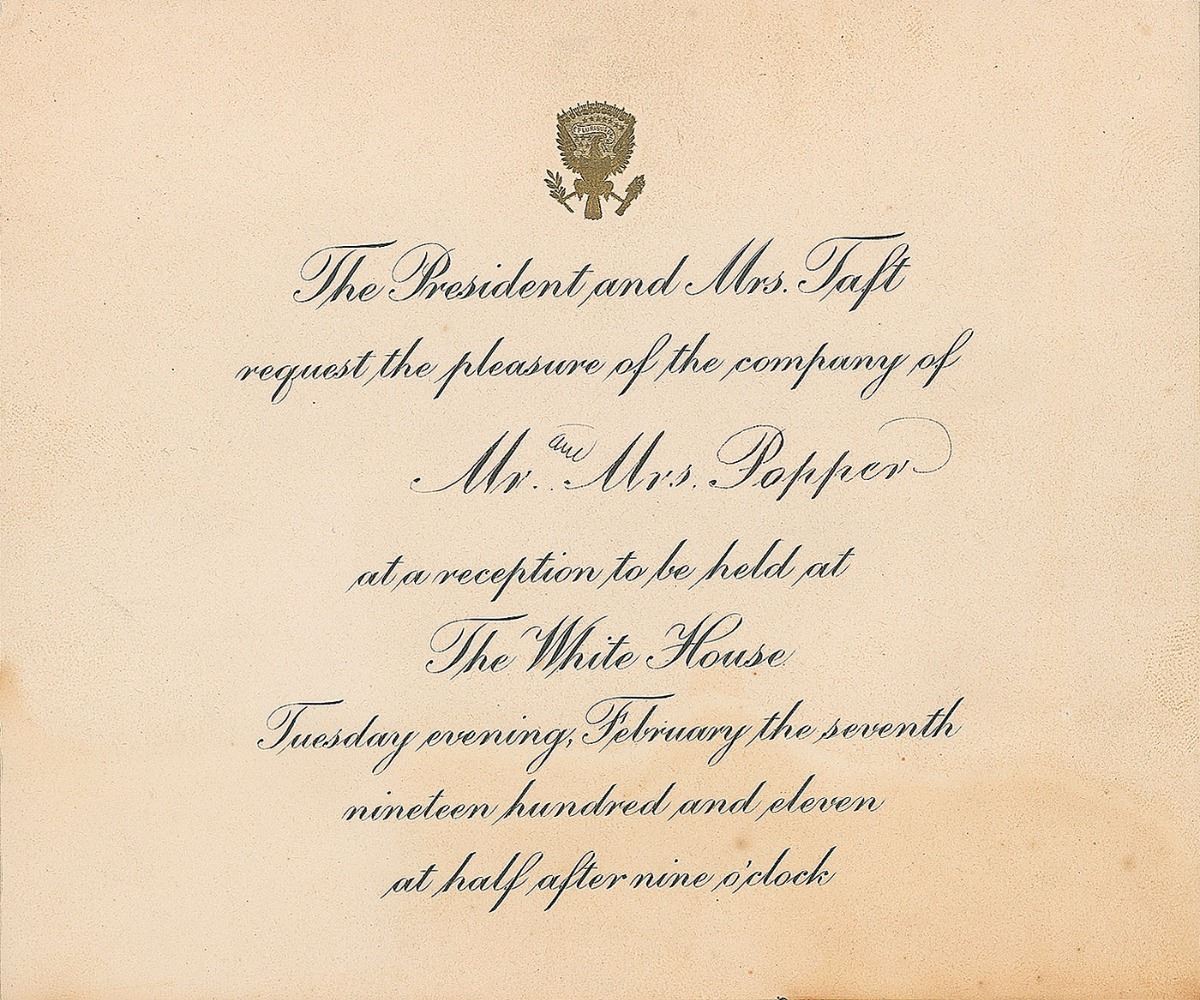 PLURIBUS
The President and Mrs. Taft
request the pleasure of the company of
Mr. and Mrs. Popper
at a reception to be held at
The White House
Tuesday evening, February the seventh
nineteen hundred and eleven
at half after nine o'clock